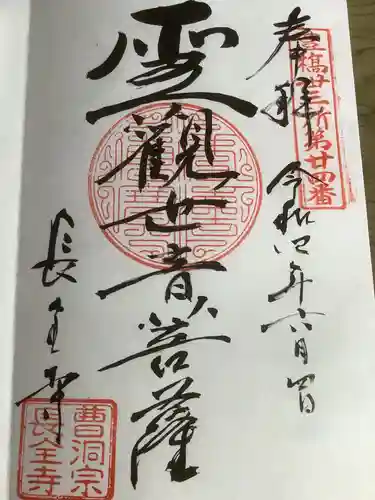 奉拝
令和四年六月四日
豊橋廿三ヶ所第廿四番
聖観世音菩薩
長全寺
曹洞宗
長全寺